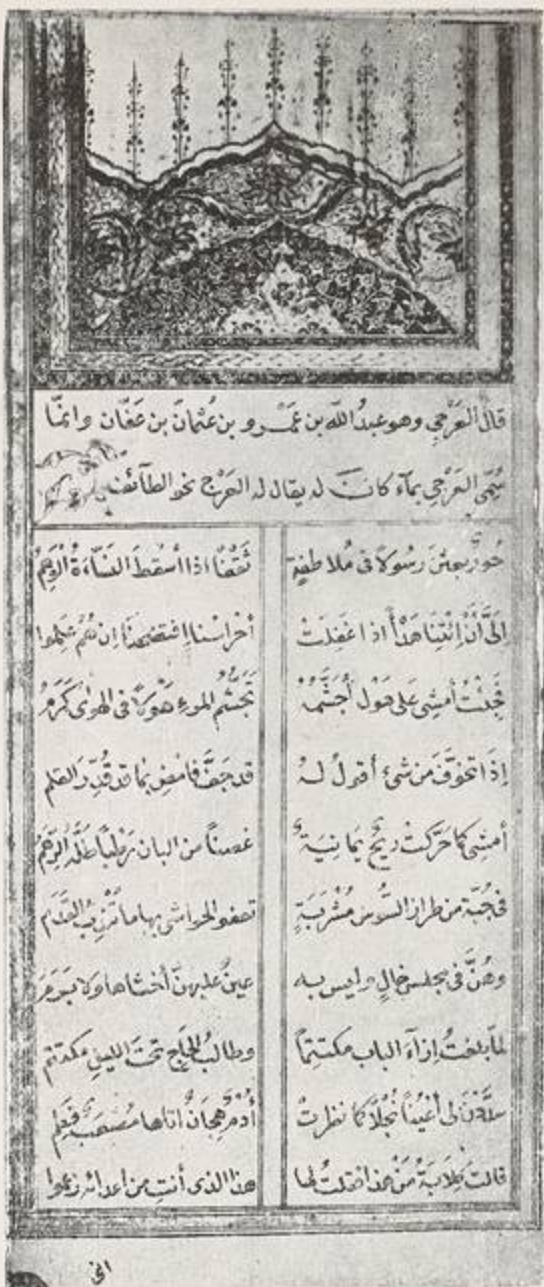 قال العَرْجي وهو عبدُ الله بن عَمْرو بن عُثمانَ بن عَفّان وانمّا
سُمّى العَرْجي بمآء كانَ له يقال له العَرْج نحو الطآئف
حُورٌ بعثن رسولاً فى ملاطفةٍ ثَقْفًا اذا أسقط النسّاءَةُ الوَهِمُ
الىّ أن ائتِنَا هَدْأً اذا غفلت أحراسنا افتضحنا إن هُمُ علموا
فجئتُ أمشى على هَول أجَشَّمُهُ تَجشُّم المرءِ هَوْلاً فى الهوٰى كَرَمُ
إذا تخوّفتُ من شئ أقولُ لهُ قد جفّ فامضِ بما قد قُدِّرَ القلم
أمشى كما حَرّكتْ ريحٌ يمانيَةٌ غصناً من البان رَطْباً طلّه الرِّهَمُ
فى حُلّة من طراز السُّوس مُشْرَبَةٍ تعفو الحواشى بها ما تُنْدِبُ القَدَم
وهُنَّ فى مجلس خالٍ وليس به عينٌ عليهنّ أخشاها ولا بَرَم
لما بلغتُ إزآءَ الباب مكتتِمًا وطالبُ الحاج تحتَ الليلِ مكتتم
سدّدْنَ لى أعْيُناً نُجْلاً كما نظرتْ أُدْمٌ هِجانٌ اتاها مُصْعَبٌ قَطِم
قالت كِلابَةُ مَنْ هذا فقلتُ لها هذا الذى أنتِ من أعدائه زعموا
انى